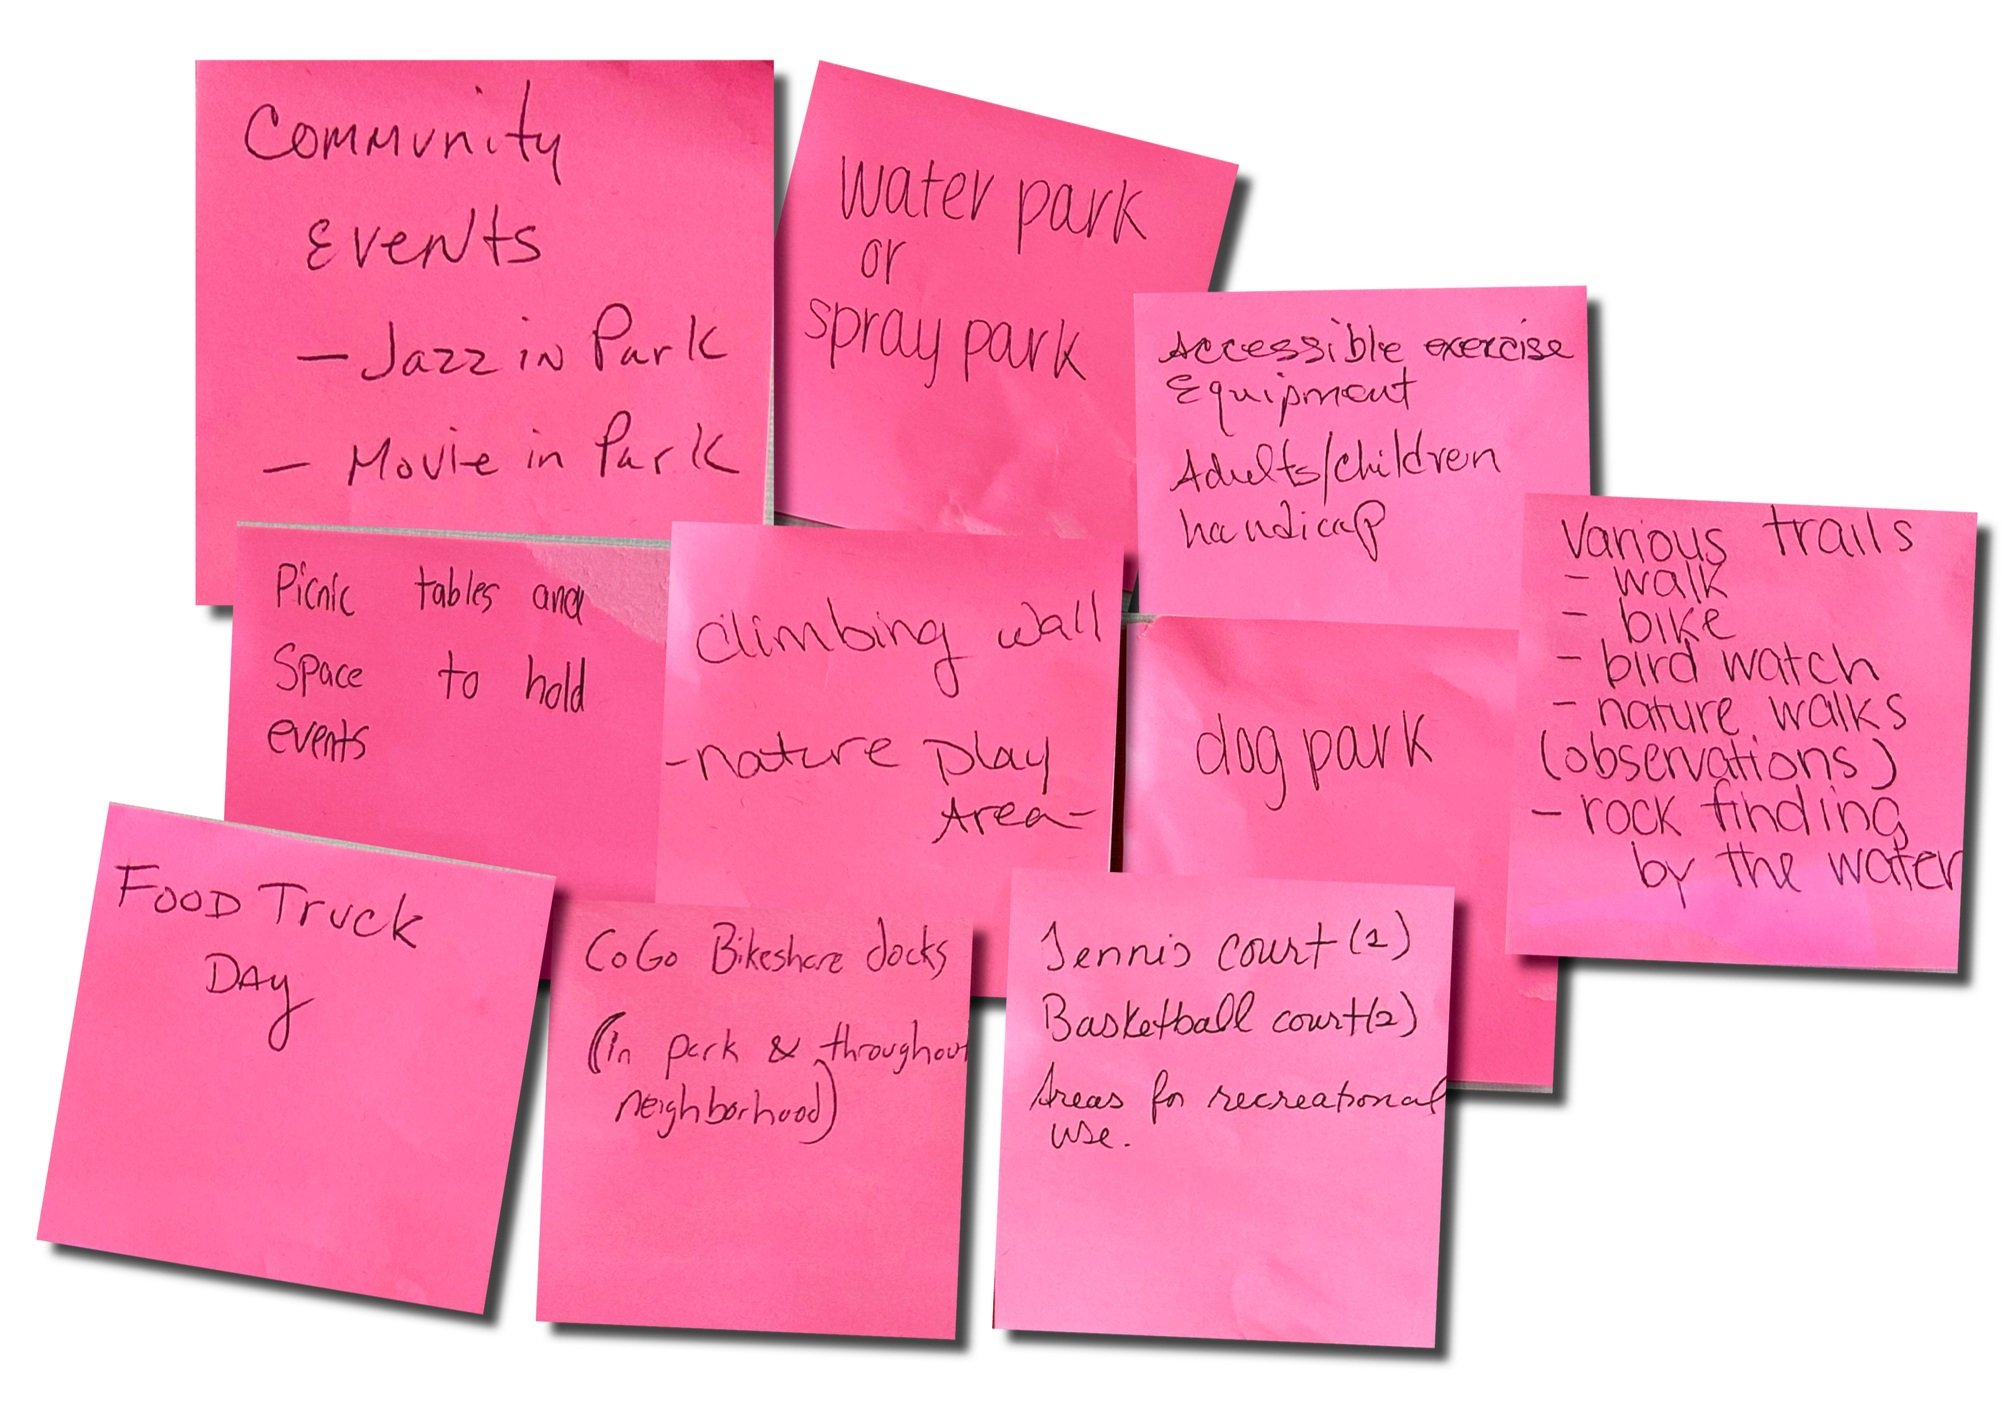 Community
Events
- Jazz in Park
- Movie in Park
water park
or
spray park
Accessible exercise
Equipment
Adults/children
handicap
Various trails
- walk
- bike
- bird watch
- nature walks
(observations)
- rock finding
by the water
Picnic tables and
Space to hold
events
climbing wall
- nature play
Area -
dog park
Food Truck
Day
CoGo Bikeshare docks
(in park & throughout
neighborhood)
Tennis court (2)
Basketball court (2)
Areas for recreational
use.